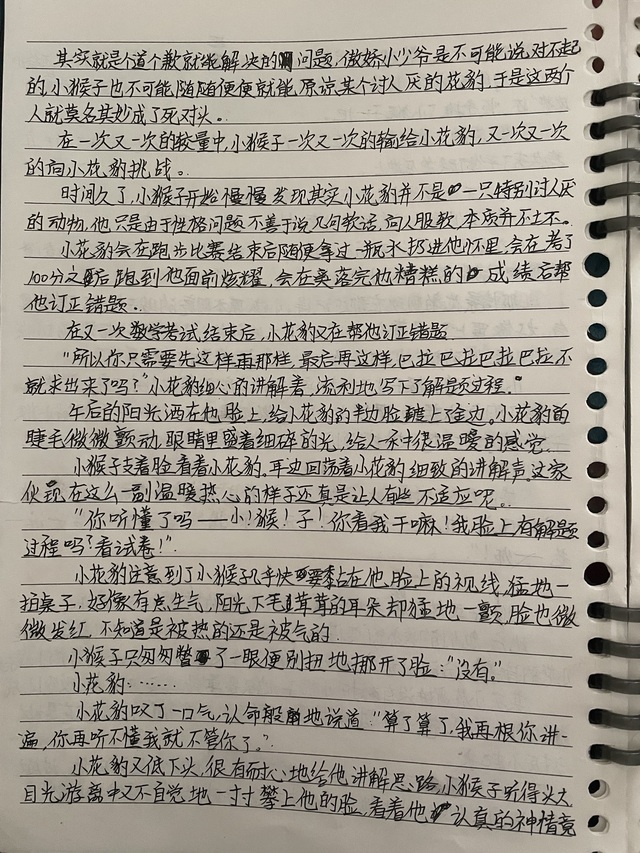 其实就是个道个歉就能解决的问题，傲娇小少爷是不可能说对不起
的，小猴子也不可能随随便便就能原谅某个讨人厌的花豹，于是这两个
人就莫名其妙成了死对头。
在一次又一次的较量中，小猴子一次又一次的输给小花豹，又一次又一次
的向小花豹挑战。
时间久了，小猴子开始慢慢发现其实小花豹并不是一只特别讨人厌
的动物，他只是由于性格问题不善于说几句软话，向人服软，本质并不坏。
小花豹会在跑步比赛结束后随便拿过一瓶水扔进他怀里，会在考了
100分之后跑到他面前炫耀，会在奚落完他糟糕的成绩后帮
他订正错题。
在又一次数学考试结束后，小花豹又在帮他订正错题
“所以你只需要先这样再那样，最后再这样，巴拉巴拉巴拉巴拉不
就求出来了吗？”小花豹细心的讲解着，流利地写下了解题过程。
午后的阳光洒在他脸上，给小花豹的半边脸镀上了金边。小花豹的
睫毛微微颤动，眼睛里盛着细碎的光，给人一种很温暖的感觉。
小猴子支着脸看着小花豹。耳边回荡着小花豹细致的讲解声。这家
伙现在这么一副温暖热心的样子还真是让人有些不适应呢。
“你听懂了吗——小！猴！子！你看我干嘛！我脸上有解题
过程吗？看试卷！”
小花豹注意到了小猴子几乎快要黏在他脸上的视线，猛地一
拍桌子，好像有点生气，阳光下毛茸茸的耳朵却猛地一颤，脸也微
微发红，不知道是被热的还是被气的.
小猴子只匆匆瞥了一眼便别扭地挪开了脸：“没有。”
小花豹：……
小花豹叹了一口气，认命般的地说道：“算了算了，我再根你讲一
遍，你再听不懂我就不管你了。”
小花豹又低下头，很有耐心地给他讲解思路，小猴子听得
目光游离中又不自觉地一寸寸攀上他的脸，看着他认真的神情竟